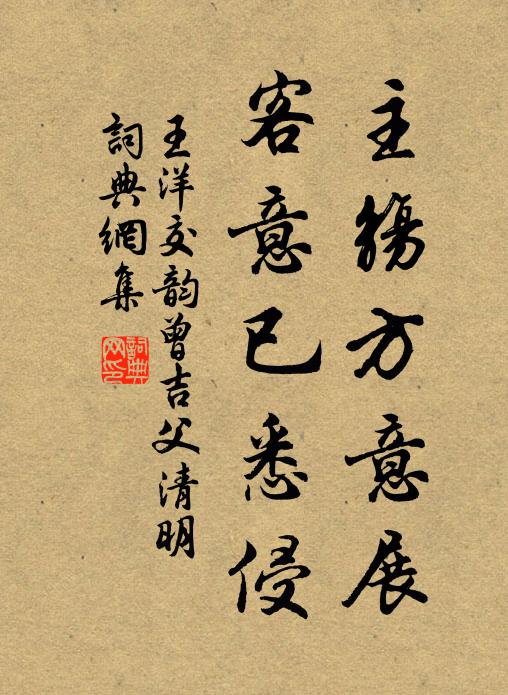 主觴方意展
客意已悉侵
王洋交韵曾吉父清明
詞典網集
詞典网印